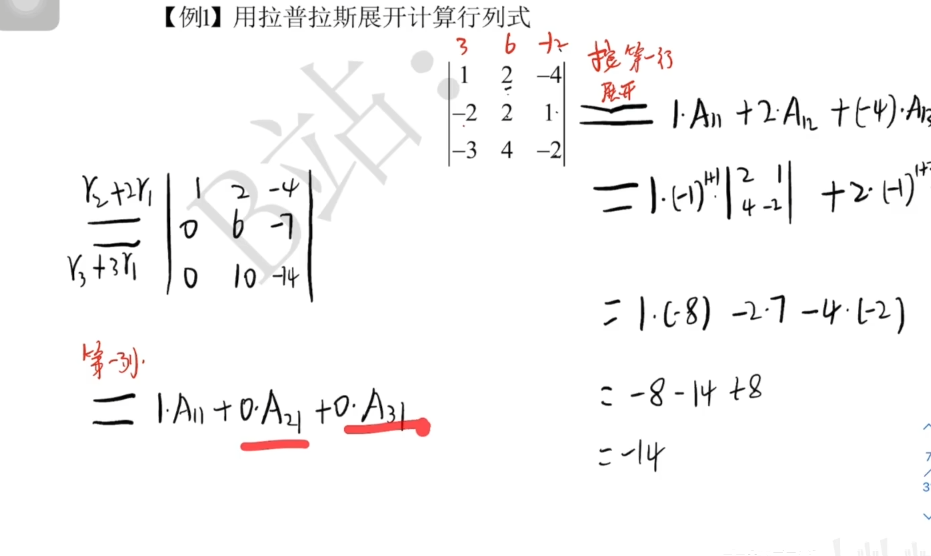 【例1】用拉普拉斯展开计算行列式
3 6 -12
1 2 -4
-2 2 1
-3 4 -2
按第一行
展开
= 1·A₁₁ + 2·A₁₂ + (-4)·A₁₃
= 1·(-1)¹⁺¹ | 2 1 | + 2·(-1)¹⁺
4 -2
= 1·(-8) -2·7 -4·(-2)
= -8 -14 +8
= -14
r₂+2r₁
r₃+3r₁
1 2 -4
0 6 -7
0 10 -14
第一列
= 1·A₁₁ + 0·A₂₁ + 0·A₃₁
B站：
7
/
3